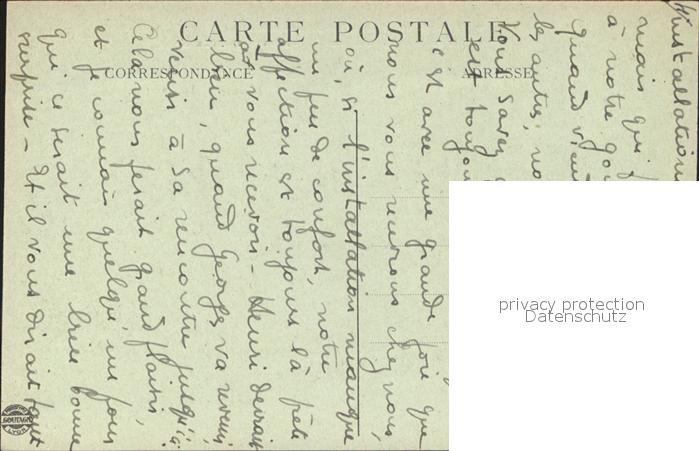 CARTE POSTALE
CORRESPONDANCE
ADRESSE
l'installation
mais qui
à notre
quand
les autres, no
Vous savez
est toujou
c'est avec une grande joie que
nous vous recevrons chez nous,
où, si l'installation manque
un peu de confort, notre
affection est toujours là prête
à vous recevoir - Henri devrait
bien, quand Georges va revenir,
venir à sa rencontre jusqu'ici
Cela nous ferait grand plaisir,
et je connais quelqu'un pour
qui ce serait une bien bonne
surprise - Et il vous dirait tout
privacy protection
Datenschutz
LYON